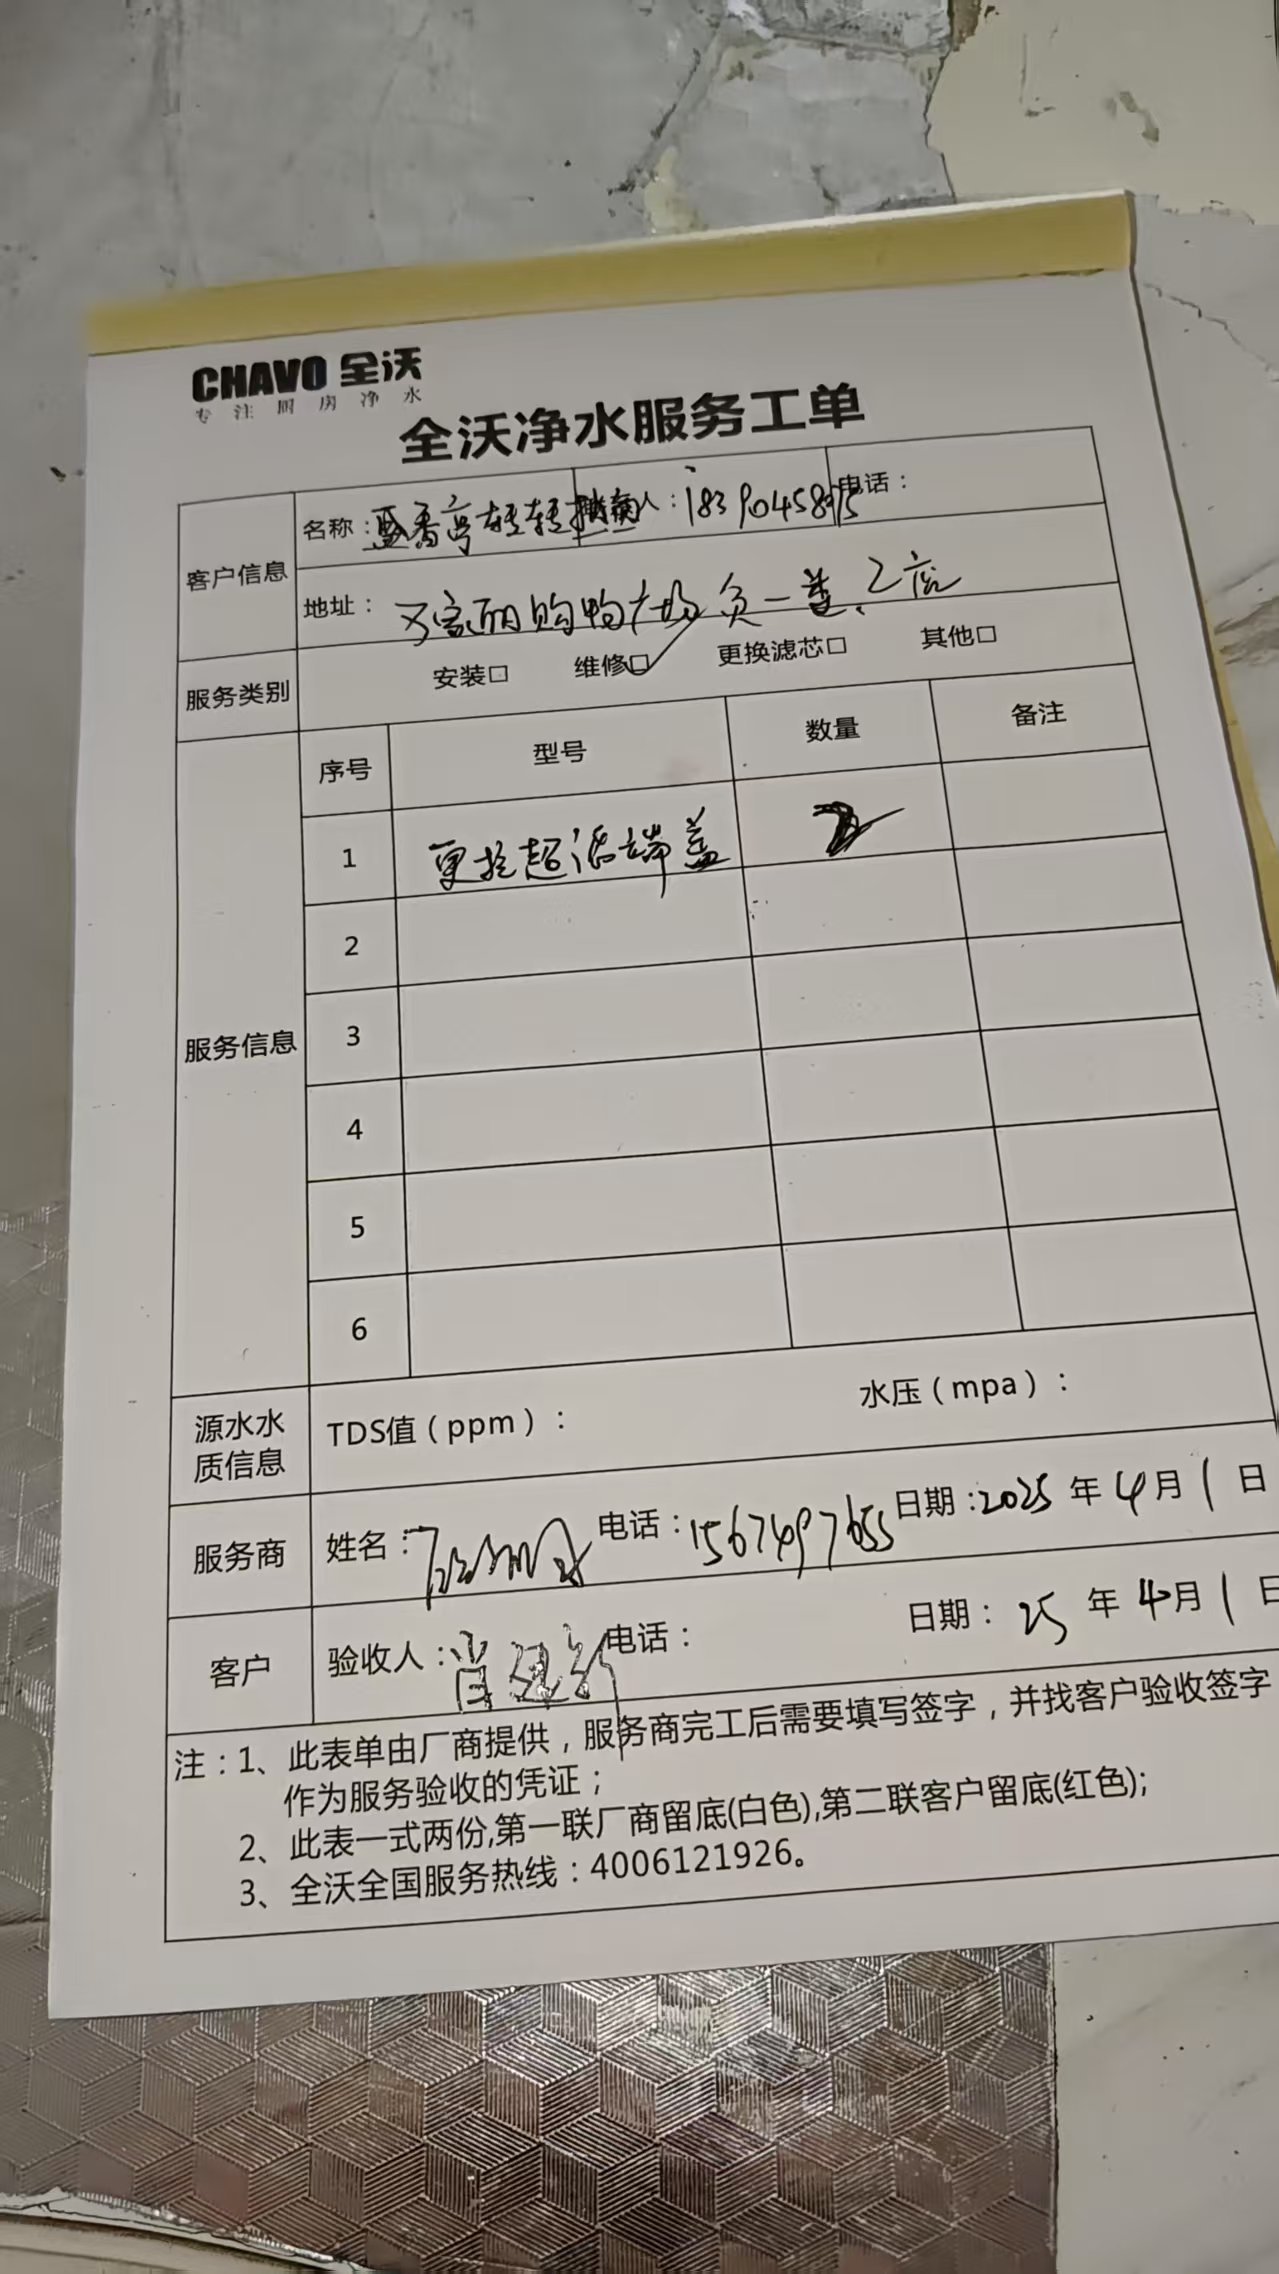 CHAVO 全沃
专注厨房净水
全沃净水服务工单
客户信息
名称：盛香亭转转 人：183904589 电话：
地址：万家丽购物广场负一楼、乙座
服务类别 安装□ 维修☑ 更换滤芯□ 其他□
服务信息
序号 型号 数量 备注
1 更换超滤端盖 2
2
3
4
5
6
源水水质信息 TDS值（ppm）： 水压（mpa）：
服务商 姓名： 电话：15674976555 日期：2025年4月1日
客户 验收人：肖 电话： 日期：25年4月1日
注：1、此表单由厂商提供，服务商完工后需要填写签字，并找客户验收签字
作为服务验收的凭证；
2、此表一式两份,第一联厂商留底(白色),第二联客户留底(红色);
3、全沃全国服务热线：4006121926。